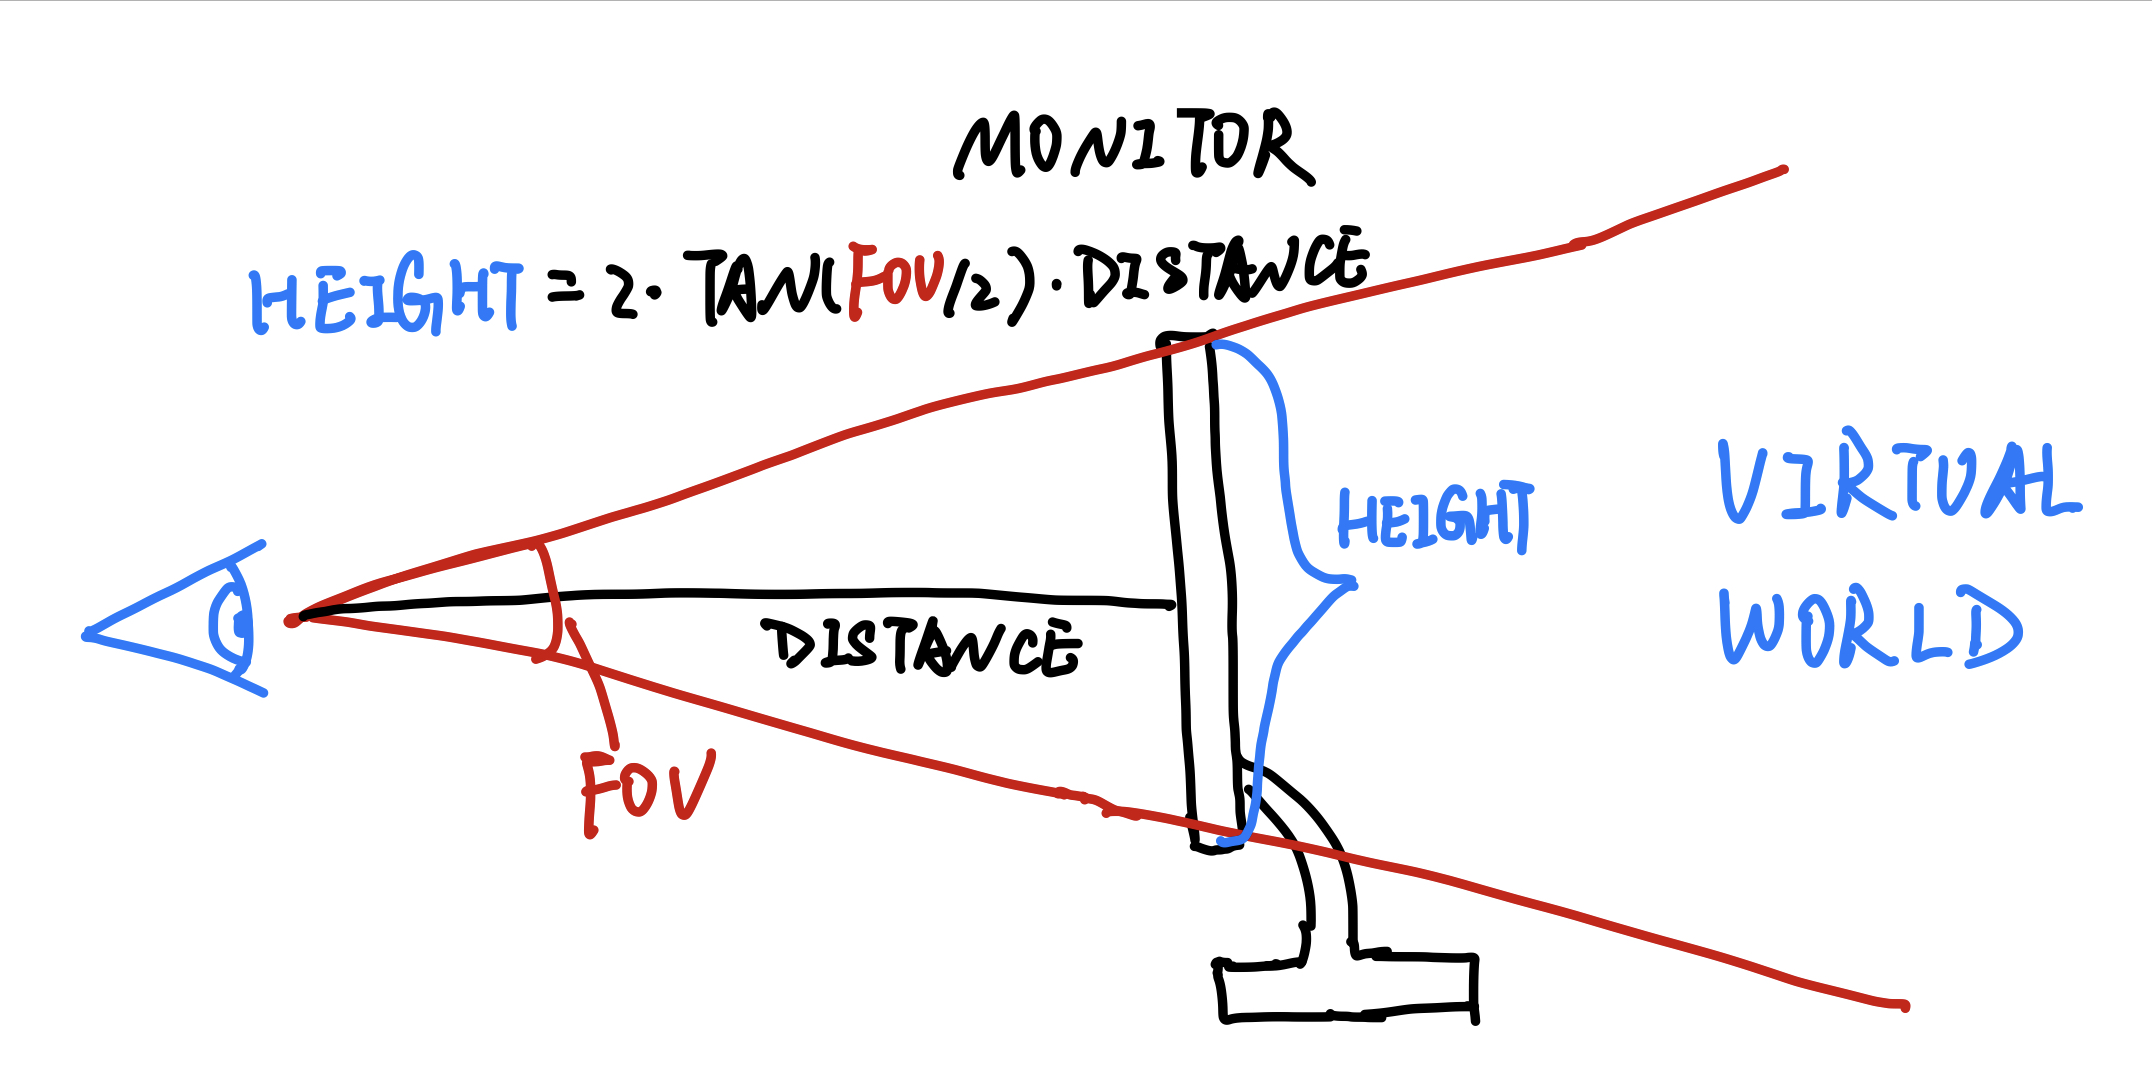 MONITOR
HEIGHT = 2 · TAN(FOV/2) · DISTANCE
HEIGHT
VIRTUAL
WORLD
DISTANCE
FOV